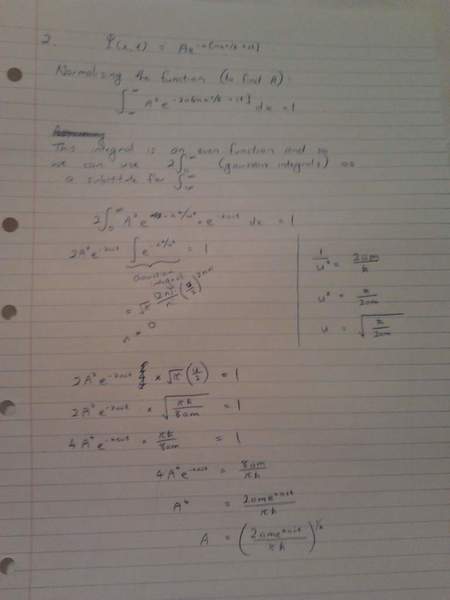 2. Ψ(x,t) = Ae^{-a[(mx²/ħ)+it]}
Normalising the function (to find A):
∫_{-∞}^{∞} A²e^{-2a[(mx²/ħ)+it]} dx = 1
This integral is an even function and so
we can use 2∫_0^∞ (gaussian integrals) as
a substitute for ∫_{-∞}^{∞}
2∫_0^∞ A²e^{-x²/u²} × e^{-2ait} dx = 1
2A²e^{-2ait} ∫e^{-x²/u²} = 1
Gaussian
integral
= √π (2n)!/n! (u/2)^{2n+1}
n = 0
1/u² = 2am/ħ
u² = ħ/2am
u = √(ħ/2am)
2A²e^{-2ait} × √π (u/2) = 1
2A²e^{-2ait} × √(πħ/8am) = 1
4A⁴e^{-4ait} × πħ/8am = 1
4A⁴e^{-4ait} = 8am/πħ
A⁴ = 2ame^{4ait}/πħ
A = (2ame^{4ait}/πħ)^{1/4}